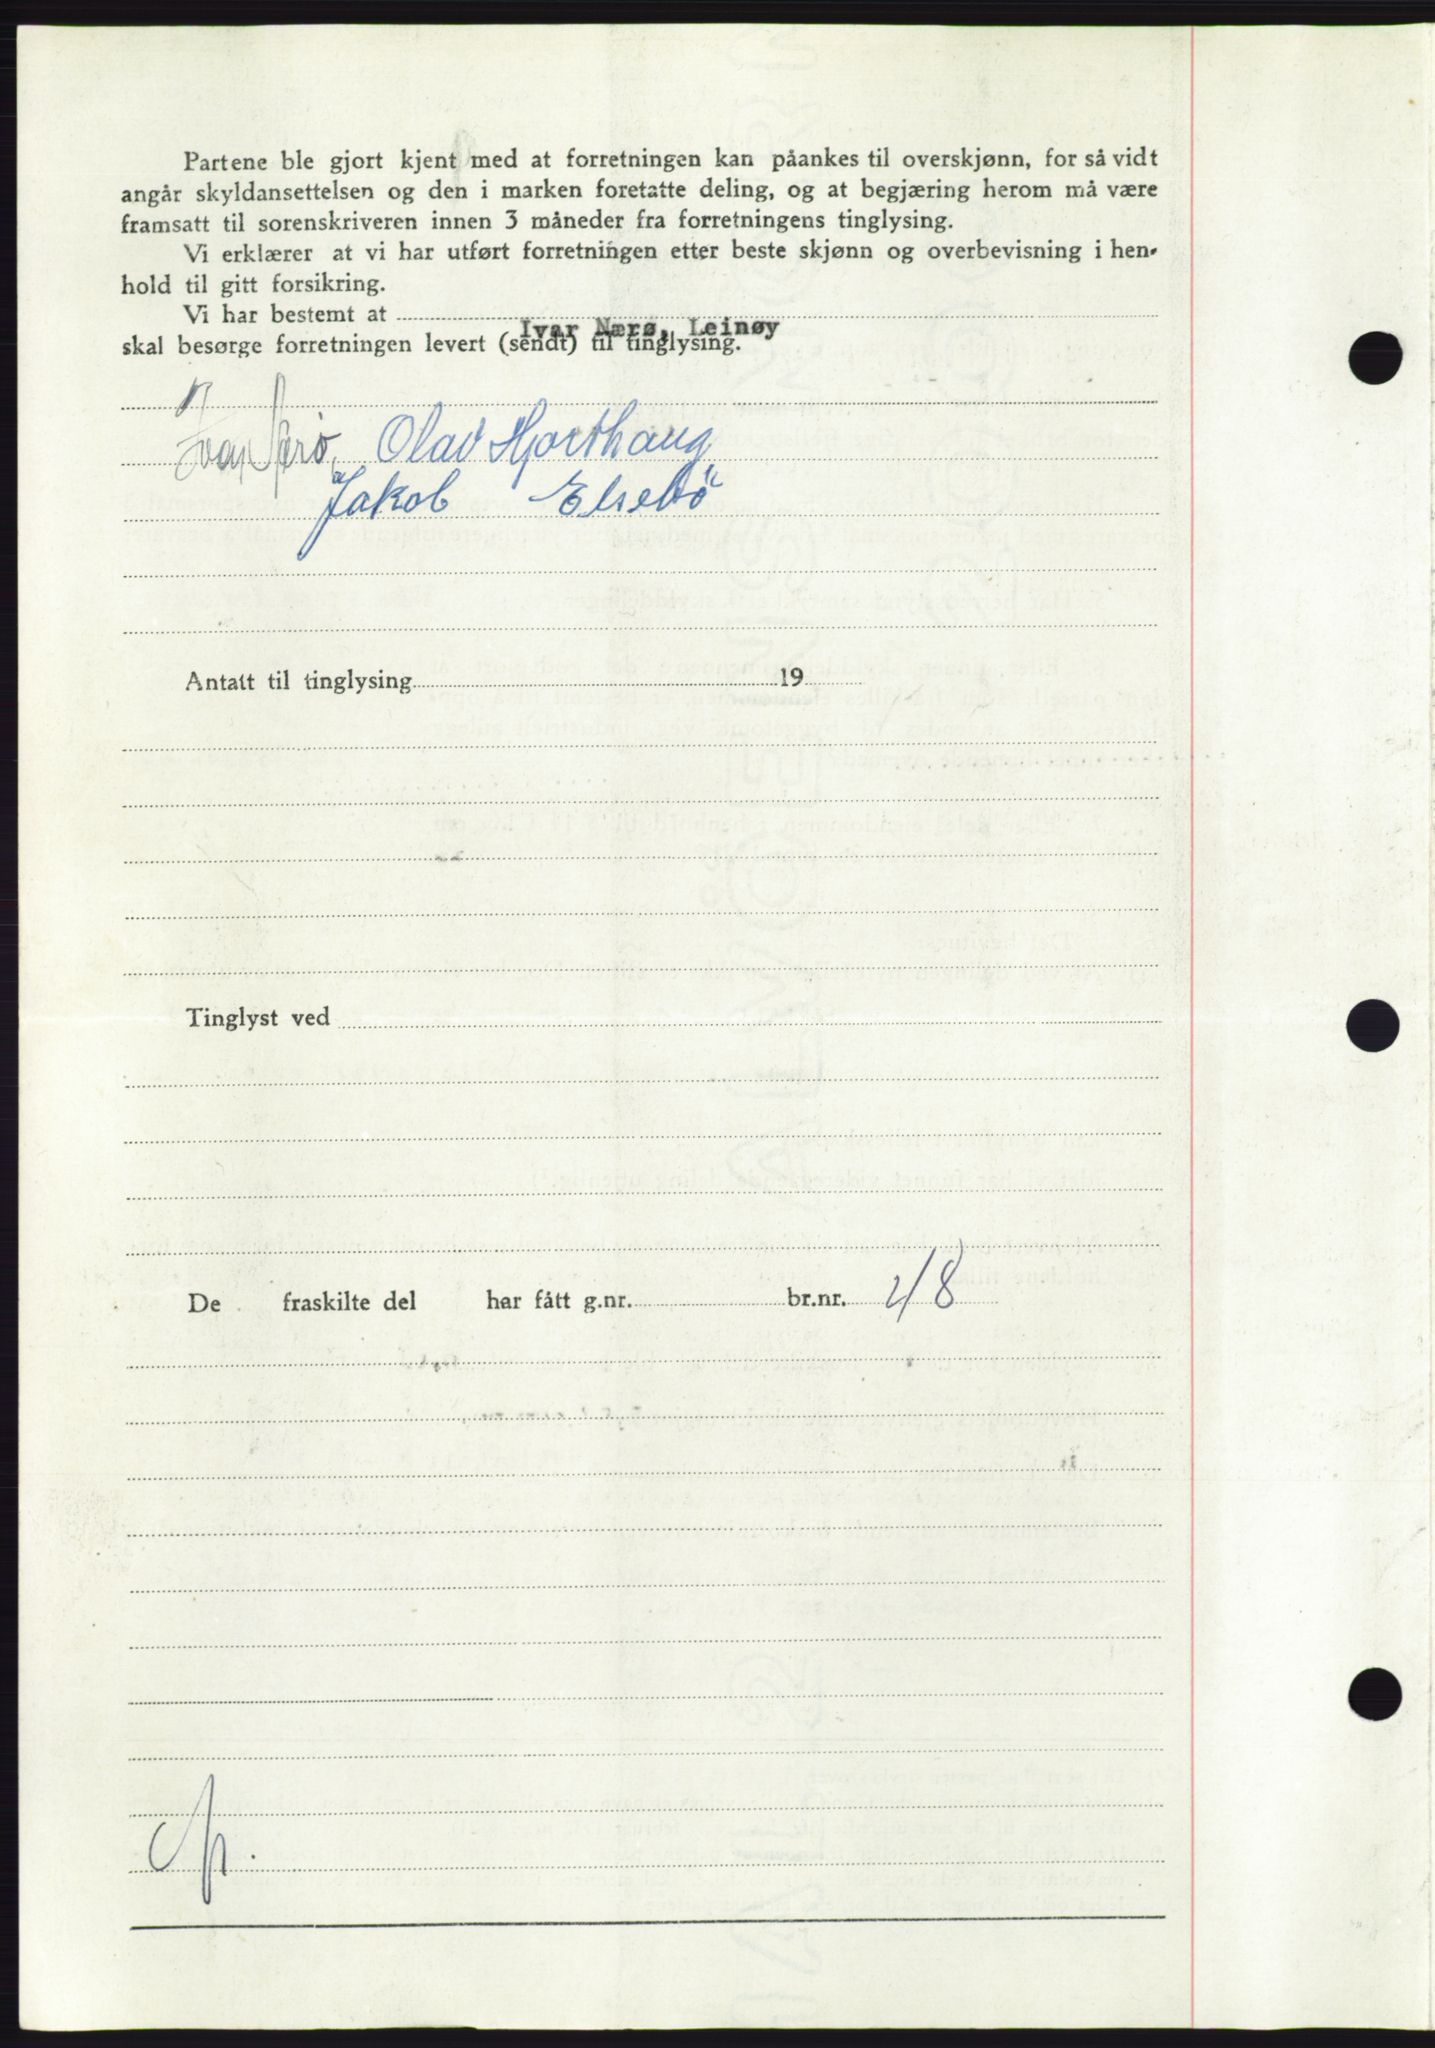 Partene ble gjort kjent med at forretningen kan påankes til overskjønn, for så vidt
angår skyldansettelsen og den i marken foretatte deling, og at begjæring herom må være
framsatt til sorenskriveren innen 3 måneder fra forretningens tinglysing.
Vi erklærer at vi har utført forretningen etter beste skjønn og overbevisning i hen-
hold til gitt forsikring.
Vi har bestemt at Ivar Nærø, Leinøy
skal besørge forretningen levert (sendt) til tinglysing.
Ivar Nærø, Olav Hjorthaug
Jakob Elsebø
Antatt til tinglysing 19
Tinglyst ved
De fraskilte del har fått g.nr. br.nr. 48